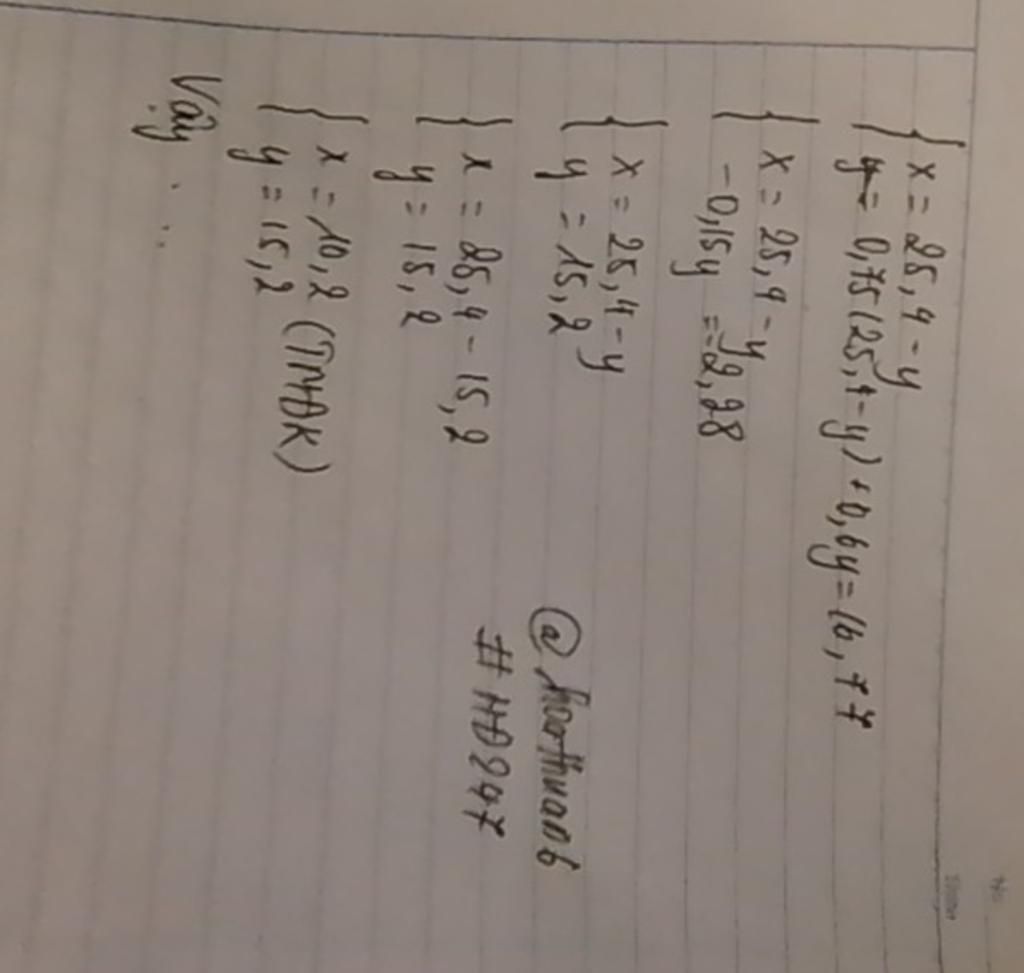 x = 25,4 - y
y = 0,75(25,4-y) + 0,6y = 16,77
x = 25,4 - y
-0,15y = -2,28
x = 25,4 - y
y = 15,2
x = 25,4 - 15,2
y = 15,2
x = 10,2 (TMĐK)
y = 15,2
Vậy ...
@hoarthuan6
#HĐ247